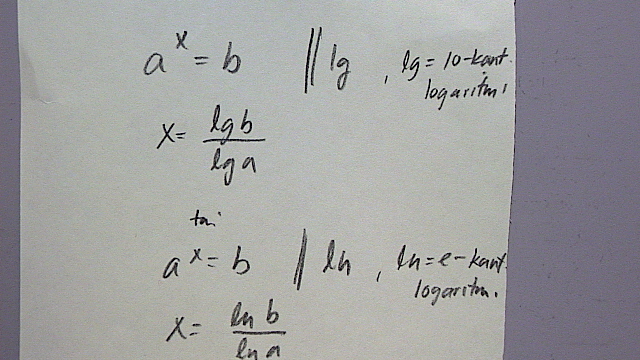 a^x = b || lg , lg = 10-kant.
logaritmi
x = lg b / lg a
tai
a^x = b || ln , ln = e-kant.
logaritm.
x = ln b / ln a